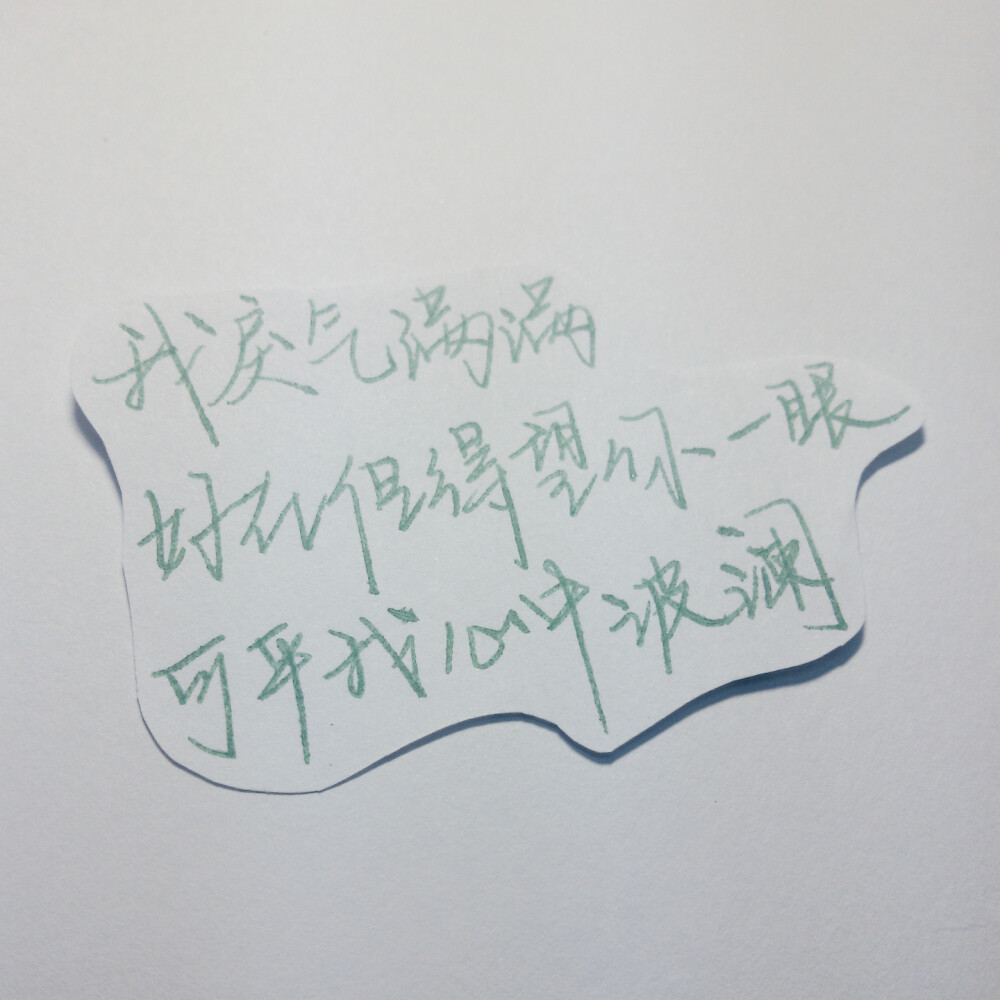 我戾气满满
好在但得望你一眼
可平我心中波澜